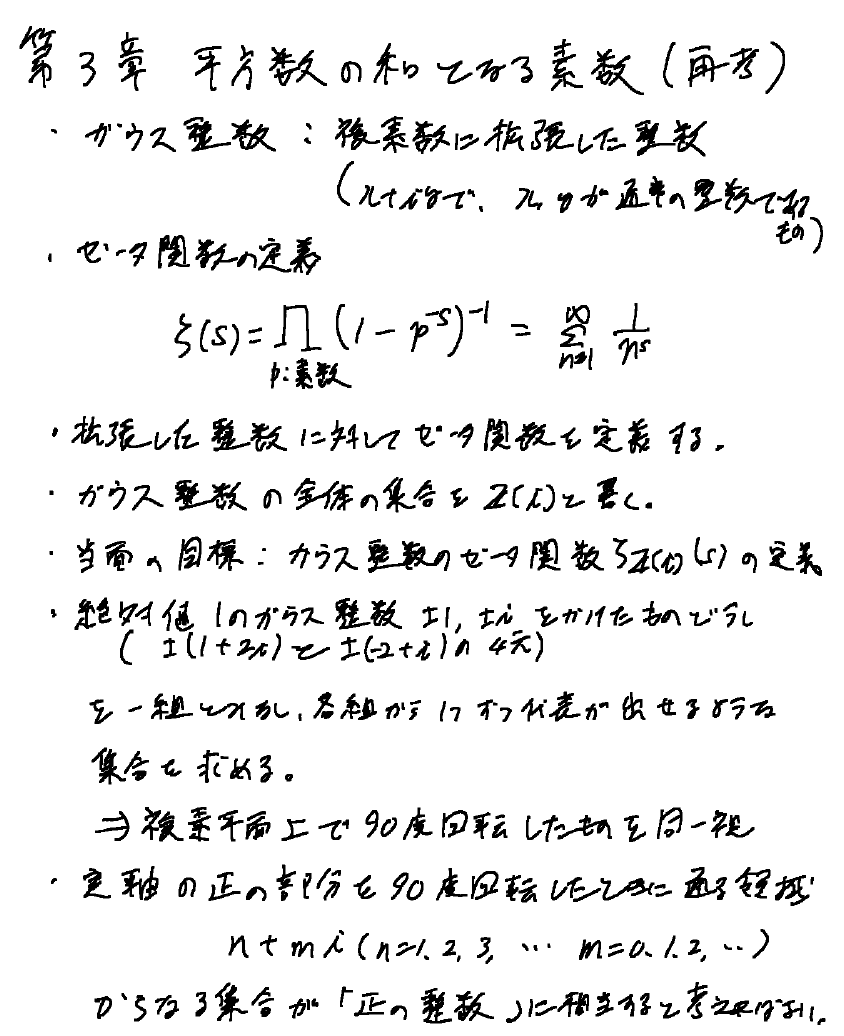 第3章 平方数の和となる素数(再考)
・ガウス整数:複素数に拡張した整数
(x+iyで、x,yが通常の整数であるもの)
・ゼータ関数の定義
ζ(s)=∏(1-p^{-s})^{-1} = ∑_{n=1}^{∞} 1/n^s
p:素数
・拡張した整数に対してゼータ関数を定義する。
・ガウス整数の全体の集合をZ(i)と書く。
・当面の目標:ガウス整数のゼータ関数ζ_{Z(i)}(s)の定義
・絶対値1のガウス整数 ±1, ±iをかけたものどうし
(±(1+2i)と±(-2+i)の4元)
を一組とみなし、各組から1つずつ代表が出せるような
集合を求める。
⇒複素平面上で90度回転したものを同一視
・実軸の正の部分を90度回転したときに通る領域
n+mi(n=1,2,3,… m=0,1,2,…)
からなる集合が「正の整数」に相当すると考えればよい。